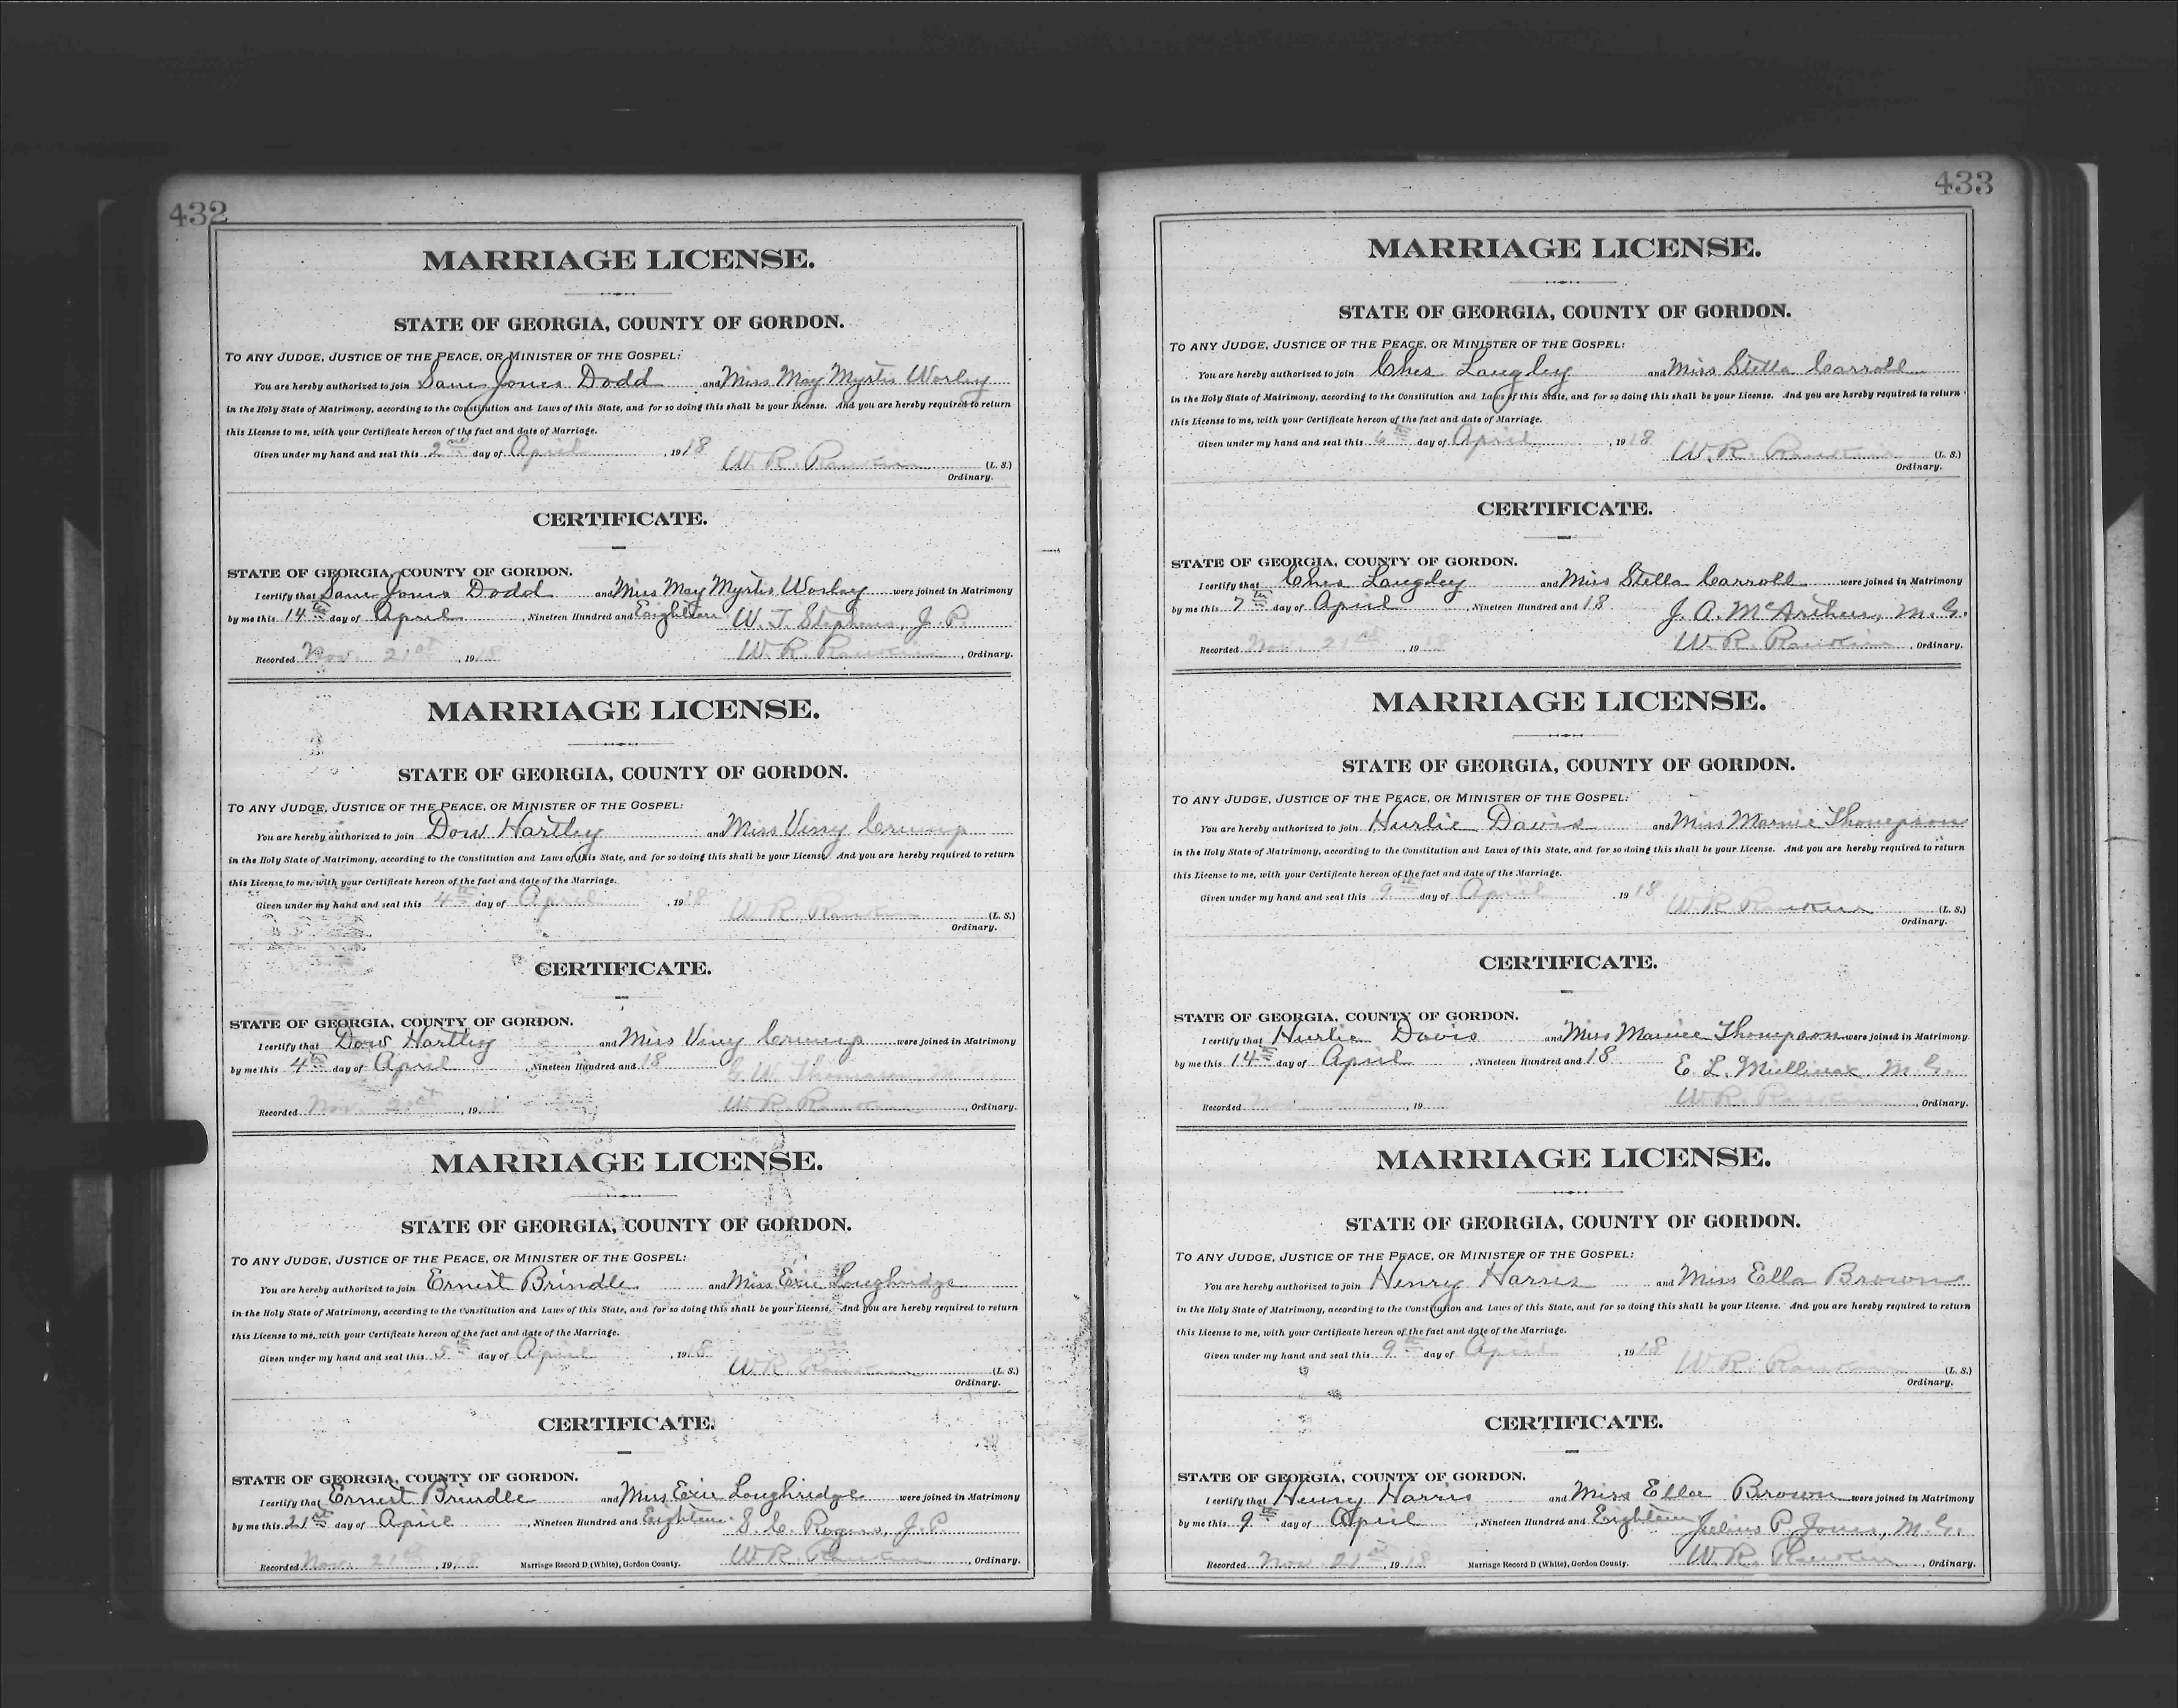 432
MARRIAGE LICENSE.
STATE OF GEORGIA, COUNTY OF GORDON.
TO ANY JUDGE, JUSTICE OF THE PEACE, OR MINISTER OF THE GOSPEL:
You are hereby authorized to join Sam Jones Dodd and Miss May Myrtis Worley
in the Holy State of Matrimony, according to the Constitution and Laws of this State, and for so doing this shall be your License. And you are hereby required to return
this License to me, with your Certificate hereon of the fact and date of Marriage.
Given under my hand and seal this 2nd day of April, 1918 W. R. Rankin (L. S.)
Ordinary.
CERTIFICATE.
STATE OF GEORGIA, COUNTY OF GORDON.
I certify that Sam Jones Dodd and Miss May Myrtis Worley were joined in Matrimony
by me this 14th day of April, Nineteen Hundred and Eighteen W. T. Stephens, J. P.
Recorded Nov. 21st, 1918 W. R. Rankin, Ordinary.
MARRIAGE LICENSE.
STATE OF GEORGIA, COUNTY OF GORDON.
TO ANY JUDGE, JUSTICE OF THE PEACE, OR MINISTER OF THE GOSPEL:
You are hereby authorized to join Dow Hartley and Miss Viny Crump
in the Holy State of Matrimony, according to the Constitution and Laws of this State, and for so doing this shall be your License. And you are hereby required to return
this License to me, with your Certificate hereon of the fact and date of the Marriage.
Given under my hand and seal this 4th day of April, 1918 W. R. Rankin (L. S.)
Ordinary.
CERTIFICATE.
STATE OF GEORGIA, COUNTY OF GORDON.
I certify that Dow Hartley and Miss Viny Crump were joined in Matrimony
by me this 4th day of April, Nineteen Hundred and 18 G. W. Thomason
Recorded Nov. 21st, 1918 W. R. Rankin, Ordinary.
MARRIAGE LICENSE.
STATE OF GEORGIA, COUNTY OF GORDON.
TO ANY JUDGE, JUSTICE OF THE PEACE, OR MINISTER OF THE GOSPEL:
You are hereby authorized to join Ernest Brindle and Miss Exie Loughridge
in the Holy State of Matrimony, according to the Constitution and Laws of this State, and for so doing this shall be your License. And you are hereby required to return
this License to me, with your Certificate hereon of the fact and date of the Marriage.
Given under my hand and seal this 5th day of April, 1918 W. R. Rankin (L. S.)
Ordinary.
CERTIFICATE.
STATE OF GEORGIA, COUNTY OF GORDON.
I certify that Ernest Brindle and Miss Exie Loughridge were joined in Matrimony
by me this 21st day of April, Nineteen Hundred and Eighteen S. C. Rogers, J. P.
Recorded Nov. 21st, 1918 Marriage Record D (White), Gordon County. W. R. Rankin, Ordinary.
433
MARRIAGE LICENSE.
STATE OF GEORGIA, COUNTY OF GORDON.
TO ANY JUDGE, JUSTICE OF THE PEACE, OR MINISTER OF THE GOSPEL:
You are hereby authorized to join Ches Langley and Miss Stella Carroll
in the Holy State of Matrimony, according to the Constitution and Laws of this State, and for so doing this shall be your License. And you are hereby required to return
this License to me, with your Certificate hereon of the fact and date of Marriage.
Given under my hand and seal this 6th day of April, 1918 W. R. Rankin (L. S.)
Ordinary.
CERTIFICATE.
STATE OF GEORGIA, COUNTY OF GORDON.
I certify that Ches Langley and Miss Stella Carroll were joined in Matrimony
by me this 7th day of April, Nineteen Hundred and 18. J. A. McArthur, M. G.
Recorded Nov. 21st, 1918 W. R. Rankin, Ordinary.
MARRIAGE LICENSE.
STATE OF GEORGIA, COUNTY OF GORDON.
TO ANY JUDGE, JUSTICE OF THE PEACE, OR MINISTER OF THE GOSPEL:
You are hereby authorized to join Hurlie Davis and Miss Mamie Thompson
in the Holy State of Matrimony, according to the Constitution and Laws of this State, and for so doing this shall be your License. And you are hereby required to return
this License to me, with your Certificate hereon of the fact and date of the Marriage.
Given under my hand and seal this 9th day of April, 1918 W. R. Rankin (L. S.)
Ordinary.
CERTIFICATE.
STATE OF GEORGIA, COUNTY OF GORDON.
I certify that Hurlie Davis and Miss Mamie Thompson were joined in Matrimony
by me this 14th day of April, Nineteen Hundred and 18 E. L. Mullinax, M. G.
Recorded , 19 W. R. Rankin, Ordinary.
MARRIAGE LICENSE.
STATE OF GEORGIA, COUNTY OF GORDON.
TO ANY JUDGE, JUSTICE OF THE PEACE, OR MINISTER OF THE GOSPEL:
You are hereby authorized to join Henry Harris and Miss Ella Brown
in the Holy State of Matrimony, according to the Constitution and Laws of this State, and for so doing this shall be your License. And you are hereby required to return
this License to me, with your Certificate hereon of the fact and date of the Marriage.
Given under my hand and seal this 9th day of April, 1918 W. R. Rankin (L. S.)
Ordinary.
CERTIFICATE.
STATE OF GEORGIA, COUNTY OF GORDON.
I certify that Henry Harris and Miss Ella Brown were joined in Matrimony
by me this 9th day of April, Nineteen Hundred and Eighteen Julius P. Jones, M. G.
Recorded Nov. 21st, 1918 Marriage Record D (White), Gordon County. W. R. Rankin, Ordinary.